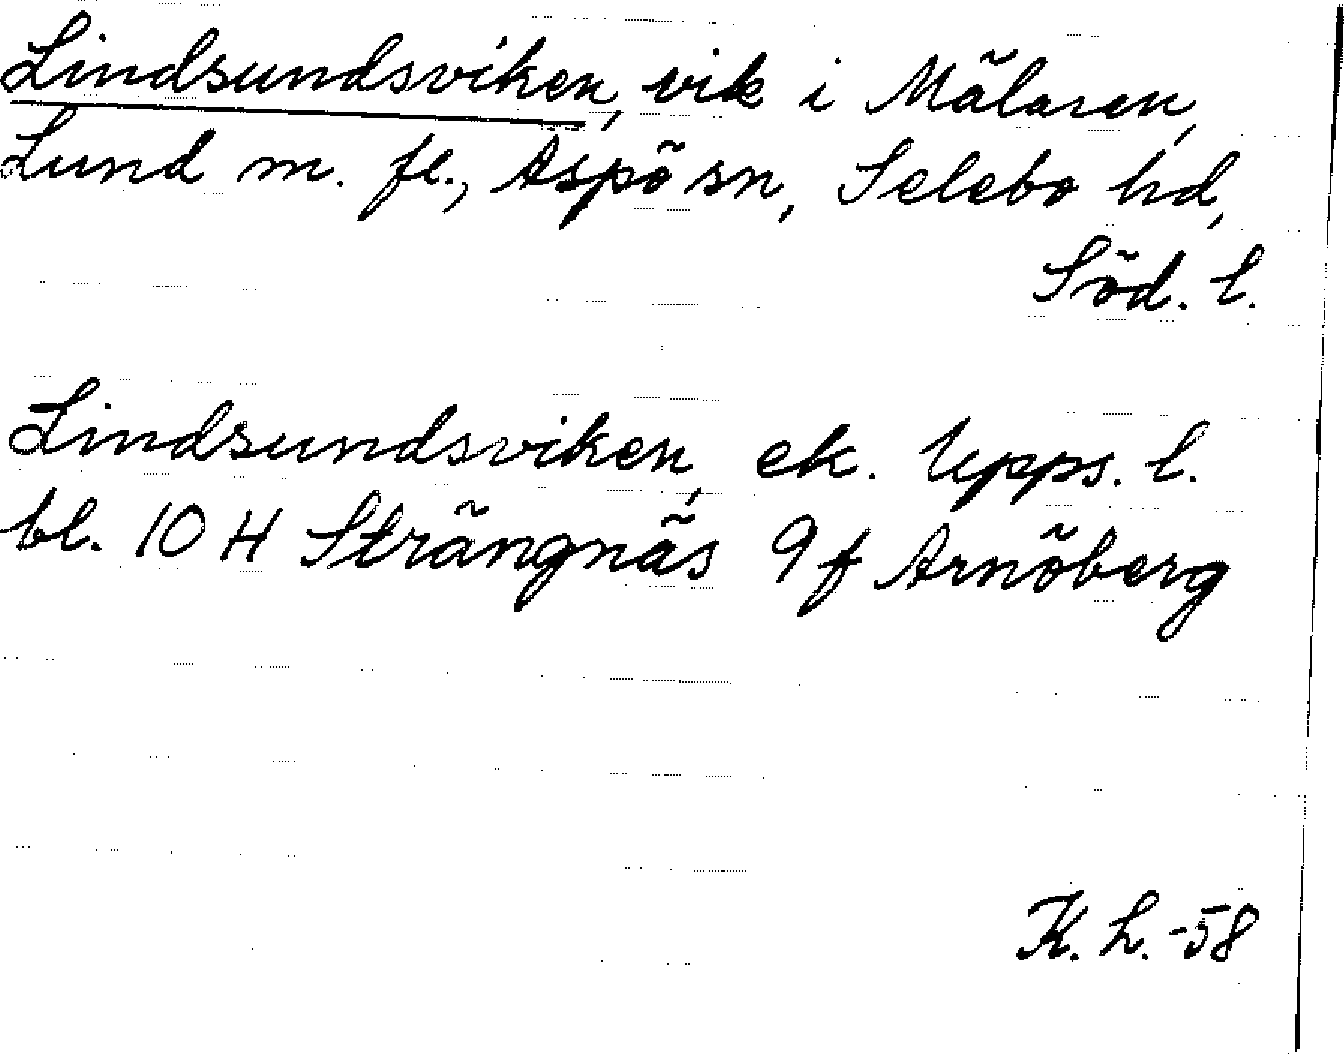 Lindsundsviken, vik i Mälaren,
Lund m. fl., Aspö sn, Selebo hd,
Söd. l.
Lindsundsviken, ek. Upps. l.
bl. 10 H Strängnäs 9 f Arnöberg
K. L. -58